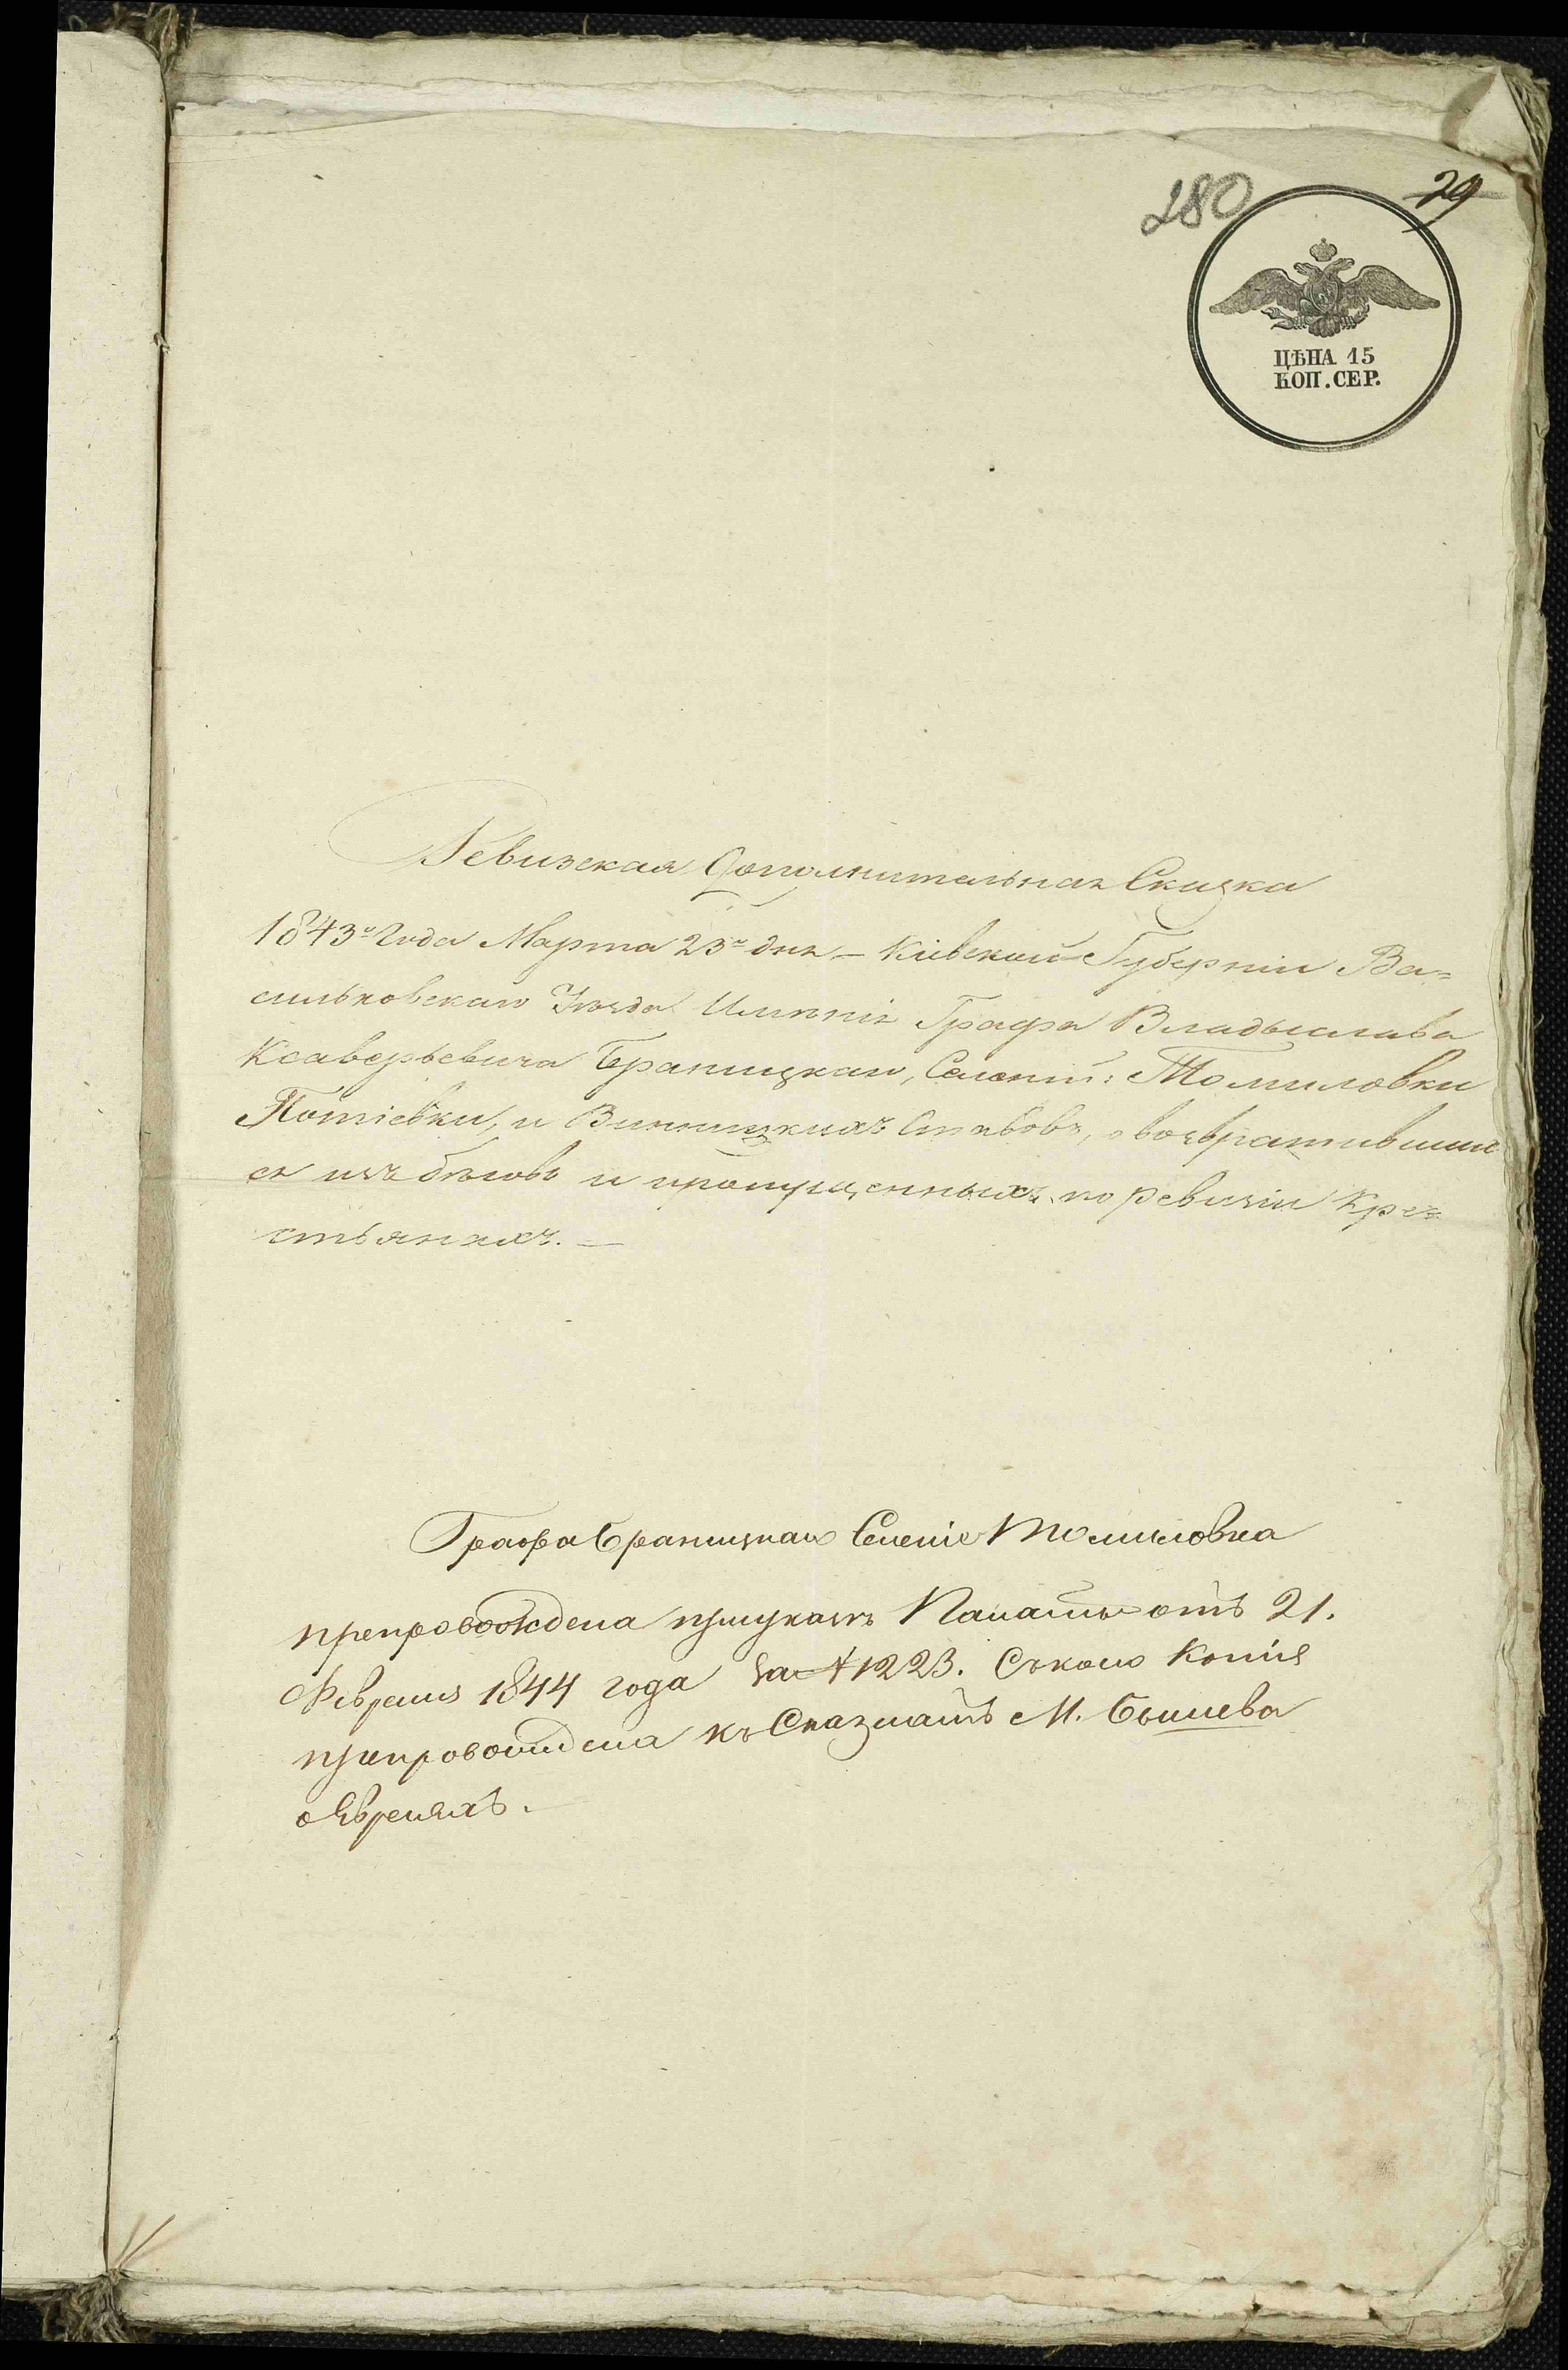 280
29
ЦѢНА 15
КОП. СЕР.
Ревизская Дополнительная Сказка
1843го Года Марта 23го дня — Кіевской Губерніи Ва=
сильковскаго Уѣзда Имѣнія Графа Владыслава
Ксаверьевича Браницкаго, Селеній: Томиловки
Потіевки, и Винницкихъ Ставовъ, о возвративших
ся изъ бѣговъ и пропущенныхъ по Ревизіи Кре=
стьянахъ. —
Графа Браницкаго Селеніе Томиловка
препровождена при указѣ Палаты отъ 21.
Февраля 1844 года за № 1223. Съ коего Копія
препровождена къ Сказкамъ М.
о Евреяхъ.